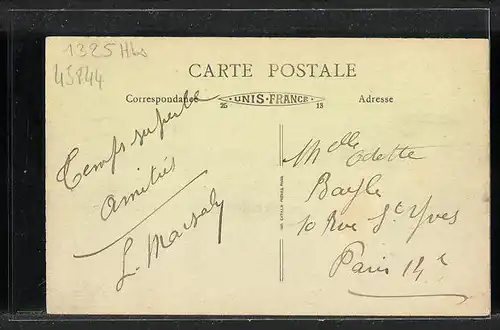 1325Hbs
45844
CARTE POSTALE
Correspondance
UNIS-FRANCE
25
13
Adresse
Temps superbe
amitiés
L. Marsaly
Melle Odette
Bayle
10 Rue St Yves
Paris 14e